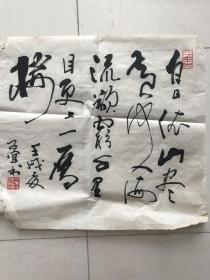 白日依山尽
黄河入海
流欲穷千里
目更上一层
楼
壬戌夏